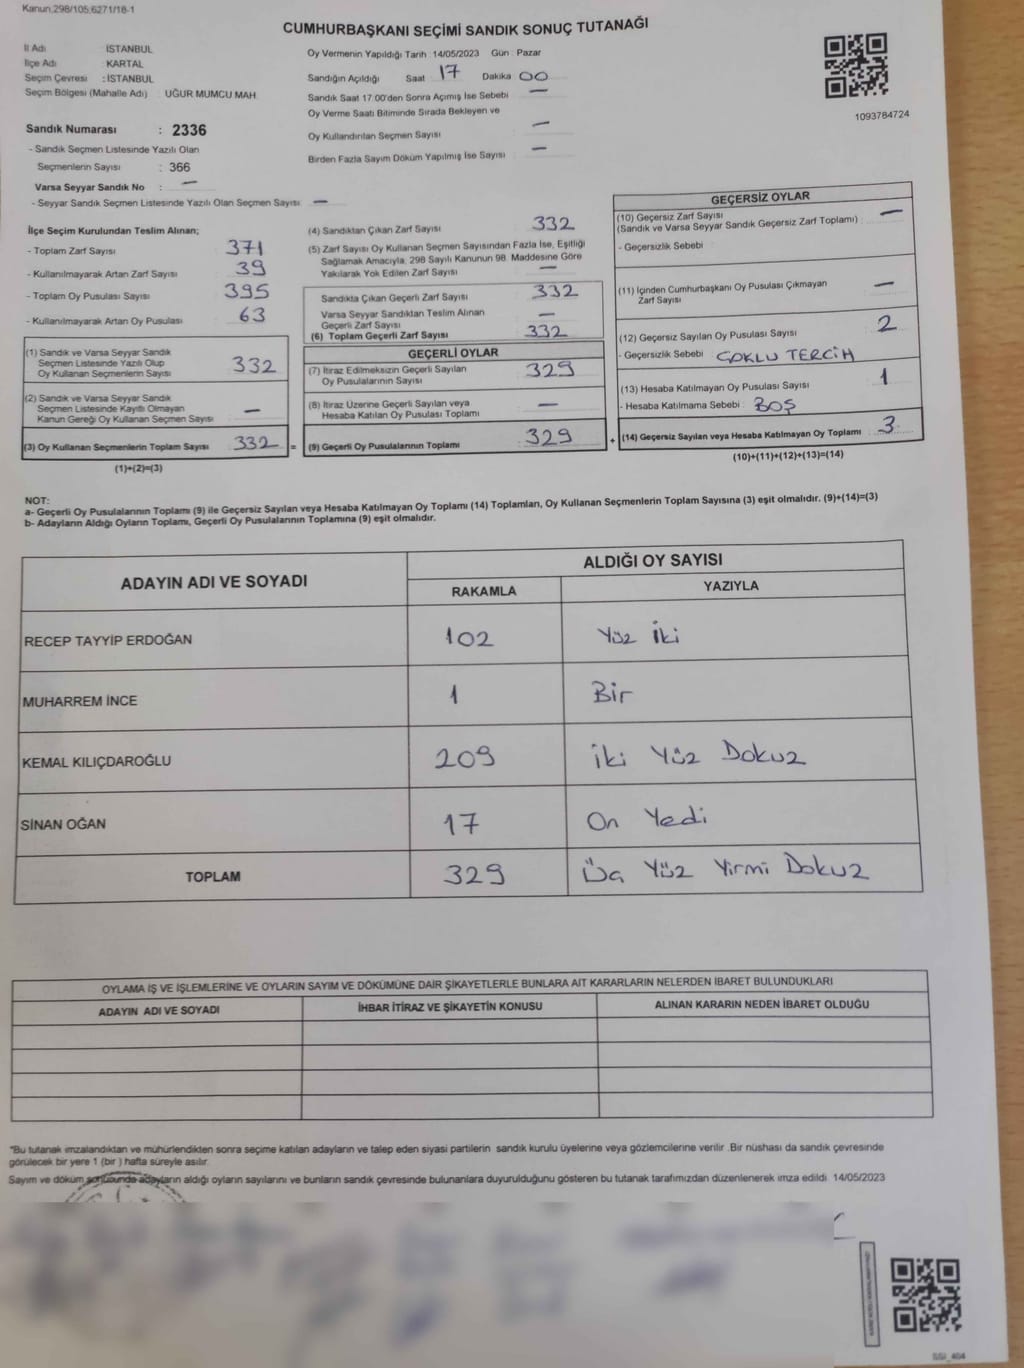 Kanun.298/105.6271/18-1
CUMHURBAŞKANI SEÇİMİ SANDIK SONUÇ TUTANAĞI
İl Adı : İSTANBUL
İlçe Adı : KARTAL
Seçim Çevresi : İSTANBUL
Seçim Bölgesi (Mahalle Adı) : UĞUR MUMCU MAH.
Sandık Numarası : 2336
- Sandık Seçmen Listesinde Yazılı Olan
Seçmenlerin Sayısı : 366
Varsa Seyyar Sandık No : —
- Seyyar Sandık Seçmen Listesinde Yazılı Olan Seçmen Sayısı : —
Oy Vermenin Yapıldığı Tarih : 14/05/2023 Gün : Pazar
Sandığın Açıldığı Saat 17 Dakika 00
Sandık Saat 17:00'den Sonra Açımış İse Sebebi : —
Oy Verme Saati Bitiminde Sırada Bekleyen ve
Oy Kullandırılan Seçmen Sayısı : —
Birden Fazla Sayım Döküm Yapılmış İse Sayısı : —
1093784724
İlçe Seçim Kurulundan Teslim Alınan;
- Toplam Zarf Sayısı : 371
- Kullanılmayarak Artan Zarf Sayısı : 39
- Toplam Oy Pusulası Sayısı : 395
- Kullanılmayarak Artan Oy Pusulası : 63
(1) Sandık ve Varsa Seyyar Sandık
Seçmen Listesinde Yazılı Olup
Oy Kullanan Seçmenlerin Sayısı : 332
(2) Sandık ve Varsa Seyyar Sandık
Seçmen Listesinde Kayıtlı Olmayan
Kanun Gereği Oy Kullanan Seçmen Sayısı : —
(3) Oy Kullanan Seçmenlerin Toplam Sayısı : 332 =
(1)+(2)=(3)
(4) Sandıktan Çıkan Zarf Sayısı : 332
(5) Zarf Sayısı Oy Kullanan Seçmen Sayısından Fazla İse, Eşitliği
Sağlamak Amacıyla, 298 Sayılı Kanunun 98. Maddesine Göre
Yakılarak Yok Edilen Zarf Sayısı : —
Sandıkta Çıkan Geçerli Zarf Sayısı : 332
Varsa Seyyar Sandıktan Teslim Alınan
Geçerli Zarf Sayısı : —
(6) Toplam Geçerli Zarf Sayısı : 332
GEÇERLİ OYLAR
(7) İtiraz Edilmeksizin Geçerli Sayılan
Oy Pusulalarının Sayısı : 329
(8) İtiraz Üzerine Geçerli Sayılan veya
Hesaba Katılan Oy Pusulası Toplamı : —
(9) Geçerli Oy Pusulalarının Toplamı : 329 +
GEÇERSİZ OYLAR
(10) Geçersiz Zarf Sayısı
(Sandık ve Varsa Seyyar Sandık Geçersiz Zarf Toplamı) : —
- Geçersizlik Sebebi :
(11) İçinden Cumhurbaşkanı Oy Pusulası Çıkmayan
Zarf Sayısı : —
(12) Geçersiz Sayılan Oy Pusulası Sayısı : 2
- Geçersizlik Sebebi : ÇOKLU TERCİH
(13) Hesaba Katılmayan Oy Pusulası Sayısı : 1
- Hesaba Katılmama Sebebi : BOŞ
(14) Geçersiz Sayılan veya Hesaba Katılmayan Oy Toplamı : 3
(10)+(11)+(12)+(13)=(14)
NOT:
a- Geçerli Oy Pusulalarının Toplamı (9) ile Geçersiz Sayılan veya Hesaba Katılmayan Oy Toplamı (14) Toplamları, Oy Kullanan Seçmenlerin Toplam Sayısına (3) eşit olmalıdır. (9)+(14)=(3)
b- Adayların Aldığı Oyların Toplamı, Geçerli Oy Pusulalarının Toplamına (9) eşit olmalıdır.
ADAYIN ADI VE SOYADI ALDIĞI OY SAYISI
RAKAMLA YAZIYLA
RECEP TAYYİP ERDOĞAN 102 Yüz İki
MUHARREM İNCE 1 Bir
KEMAL KILIÇDAROĞLU 209 İki Yüz Dokuz
SİNAN OĞAN 17 On Yedi
TOPLAM 329 Üç Yüz Yirmi Dokuz
OYLAMA İŞ VE İŞLEMLERİNE VE OYLARIN SAYIM VE DÖKÜMÜNE DAİR ŞİKAYETLERLE BUNLARA AİT KARARLARIN NELERDEN İBARET BULUNDUKLARI
ADAYIN ADI VE SOYADI İHBAR İTİRAZ VE ŞİKAYETİN KONUSU ALINAN KARARIN NEDEN İBARET OLDUĞU
*Bu tutanak imzalandıktan ve mühürlendikten sonra seçime katılan adayların ve talep eden siyasi partilerin sandık kurulu üyelerine veya gözlemcilerine verilir. Bir nüshası da sandık çevresinde
görülecek bir yere 1 (bir) hafta süreyle asılır.
Sayım ve döküm sonucunda adayların aldığı oyların sayılarını ve bunların sandık çevresinde bulunanlara duyurulduğunu gösteren bu tutanak tarafımızdan düzenlenerek imza edildi. 14/05/2023
SSI_404